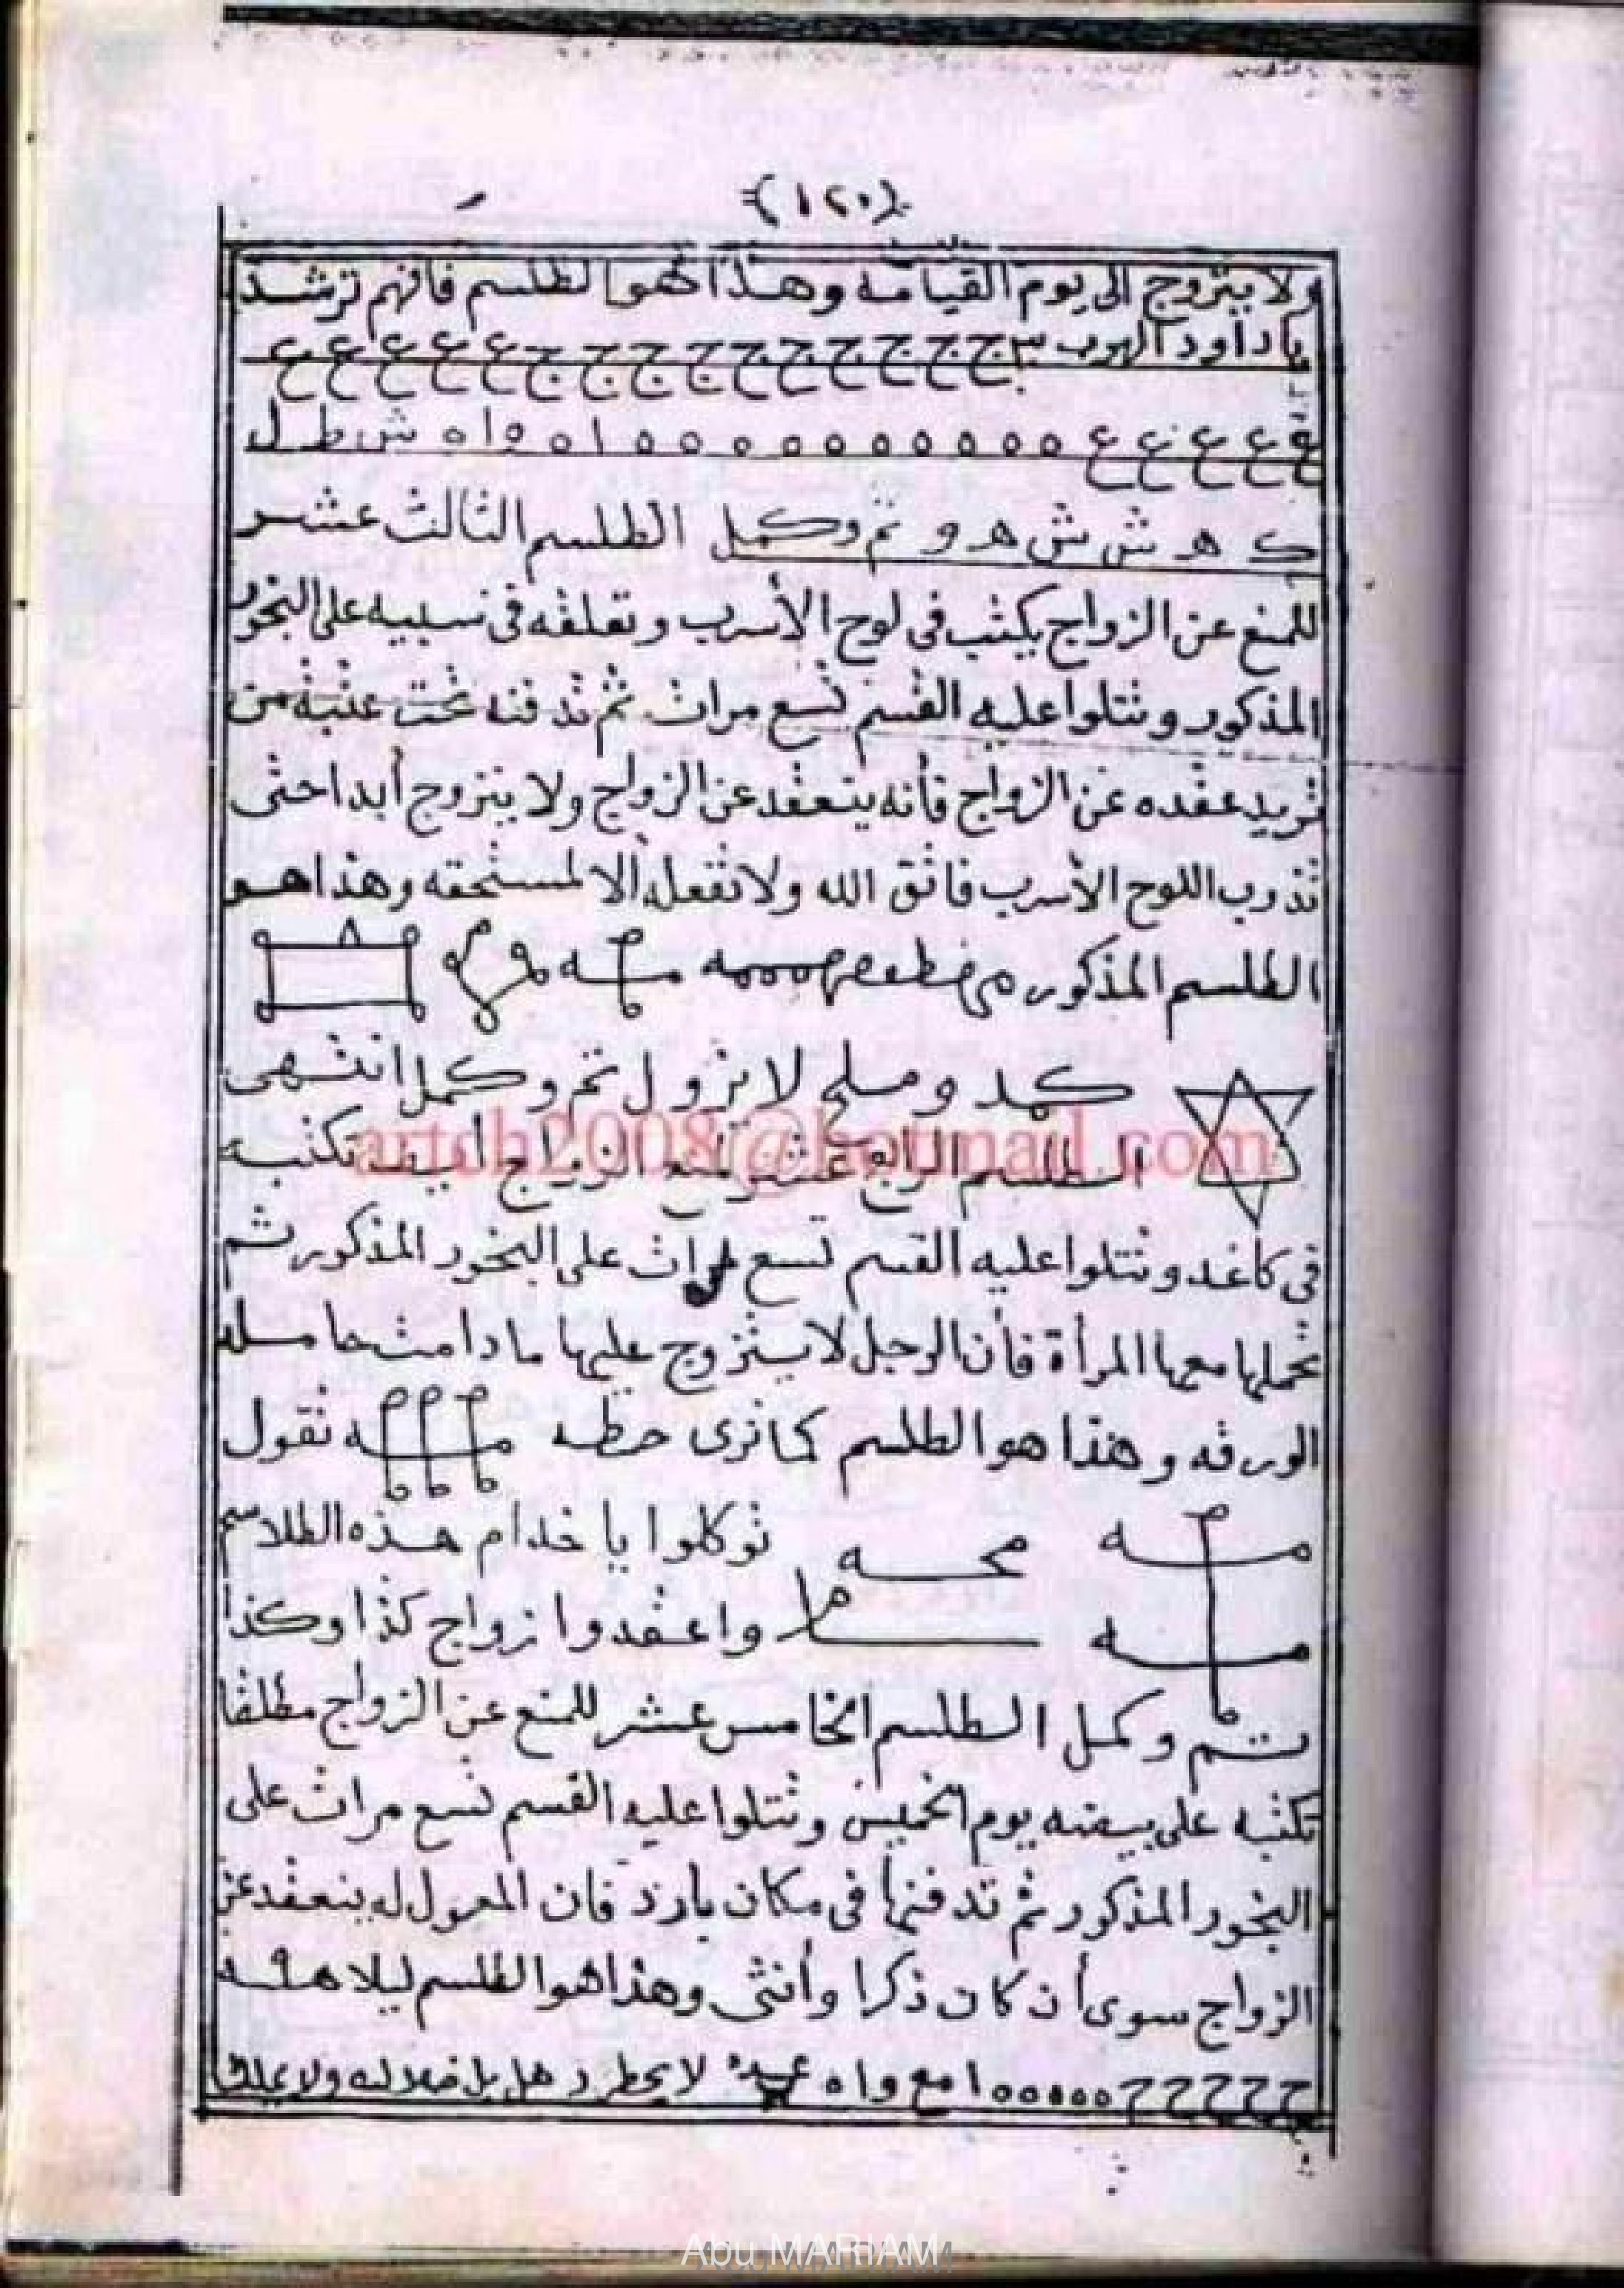 (١٢٠)
ولا يتزوج الى يوم القيامه وهذا هو الطلسم فافهم ترشد
يا داود الهرب ٣ ج ج ج ج ج ج ج ج ج ج ع ع ع ع ع
ع ع ع ع ع ه ه ه ه ه ه ه ه ه ا ه ه ا ه ش ط ل
ك ه ش ش ه و تم وكمل الطلسم الثالث عشر
للمنع عن الزواج يكتب فى لوح الأسرب وتعلقه فى نسيبيه على البخور
المذكور وتتلوا عليه القسم تسع مرات ثم تدفنه تحت عتبة من
تريد عقده عن الزواج فأنه يتعقد عن الزواج ولا يتزوج أبدا حتى
تذوب اللوح الأسرب فاتق الله ولا تفعله ألا لمستحقه وهذا هو
الطلسم المذكور
كمد وملح لا تزول تم وكمل انتهى
الطلسم الرابع عشر لمنع الزواج أيضا تكتبه
فى كاغد وتتلوا عليه القسم تسع مرات على البخور المذكور ثم
تحملها معها المرأة فأن الرجل لا يتزوج عليها ما دامت حامله
الورقه وهذا هو الطلسم كما ترى حطه مه تقول
مه محه توكلوا يا خدام هذه الطلاسم
مه واعقدوا زواج كذا وكذا
تم وكمل الطلسم الخامس عشر للمنع عن الزواج مطلقا
تكتبه على بيضه يوم الخميس وتتلوا عليه القسم تسع مرات على
البخور المذكور ثم تدفنها فى مكان بارد فان المعمول له ينعقد عن
الزواج سوى أن كان ذكرا وأنثى وهذا هو الطلسم ليلا
ح ح ح ح ح ه ه ه ه ه ا مع واه لا يحطرد هل بل ولا
artch2008@hotmail.com
Abu MARIAM